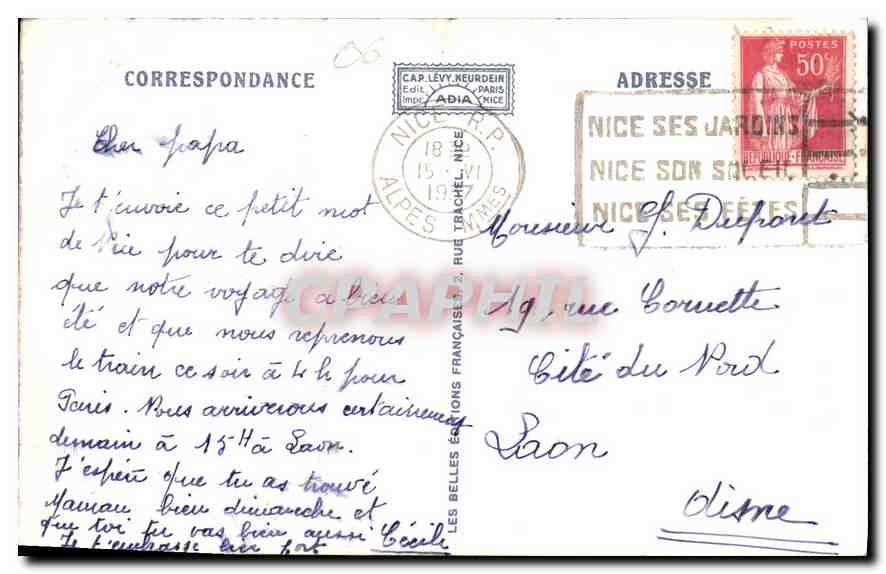 06
CORRESPONDANCE
C.A.P. LÉVY, NEURDEIN
Edit. PARIS
Impr. ADIA NICE
ADRESSE
POSTES
50c
REPUBLIQUE FRANÇAISE
NICE R.P.
18
15 VI
ALPES MMES
NICE SES JARDINS
NICE SON SOLEIL
NICE SES FÊTES
LES BELLES ÉDITIONS FRANÇAISES 2, RUE TRACHEL, NICE
Cher papa
Je t'envoie ce petit mot
de Nice pour te dire
que notre voyage a bien
été et que nous reprenons
le train ce soir à 4h pour
Paris. Nous arriverons certainement
demain à 15H à Laon.
J'espère que tu as trouvé
Maman bien dimanche et
que toi tu vas bien aussi
Je t'embrasse bien fort Cécile
Monsieur G. Dupont
19, rue Cornette
Cité du Nord
Laon
Aisne
CPAPHIL